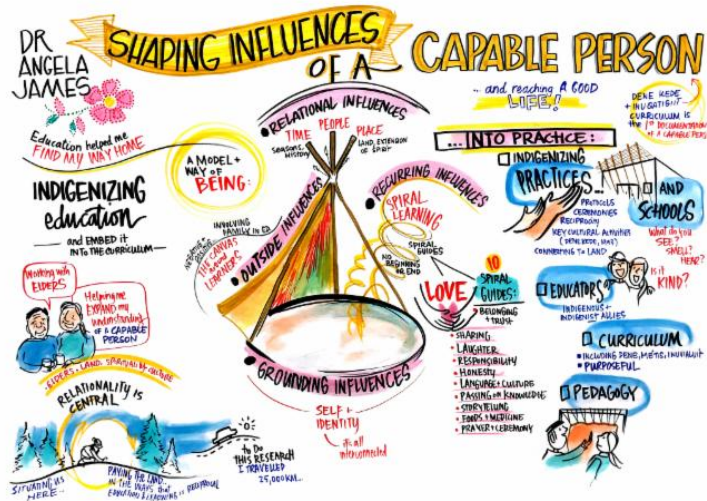 DR
ANGELA
JAMES
SHAPING INFLUENCES
OF A
CAPABLE PERSON
... and reaching A GOOD
LIFE!
Education helped me
FIND MY WAY HOME
INDIGENIZING
education
and EMBED it
INTO THE CURRICULUM
Working with
ELDERS
Helping me
EXPAND my
understanding
OF A CAPABLE
PERSON
RELATIONALITY IS
CENTRAL
SITUATING US
HERE...
PAYING THE LAND...
IN THE WAYS that
EDUCATION & LEARNING IS RECIPROCAL
to Do
THIS RESEARCH
I TRAVELLED
25,000 KM...
A MODEL +
WAY OF
BEING:
RELATIONAL INFLUENCES
TIME
SEASONS,
HISTORY
PEOPLE
PLACE
LAND, EXTENSION
OF SPIRIT
OUTSIDE INFLUENCES
INVOLVING
FAMILY IN ED
THE CANVAS
LEARNERS
RECURRING INFLUENCES
SPIRAL
LEARNING
SPIRAL
GUIDES
NO
BEGINNING
OR END
GROUNDING INFLUENCES
SELF +
IDENTITY
it's all
interconnected
LOVE
10
SPIRAL
GUIDES:
BELONGING
+ TRUST
SHARING
LAUGHTER
RESPONSIBILITY
HONESTY
LANGUAGE + CULTURE
PASSING ON KNOWLEDGE
STORYTELLING
FOODS + MEDICINE
PRAYER + CEREMONY
DENE KEDE
+ INUUQATIGIIT
CURRICULUM IS
the 1ST DOCUMENTATION
OF A CAPABLE PERSON
... INTO PRACTICE:
INDIGENIZING
PRACTICES...
PROTOCOLS
CEREMONIES
RECIPROCITY
KEY CULTURAL ACTIVITIES
CONNECTING TO LAND
AND
SCHOOLS
What do you
SEE?
SMELL?
HEAR?
Is it
KIND?
EDUCATORS
INDIGENOUS +
INDIGENIST ALLIES
CURRICULUM
INCLUDING DENE, MÉTIS, INUVIALUIT
PURPOSEFUL
PEDAGOGY